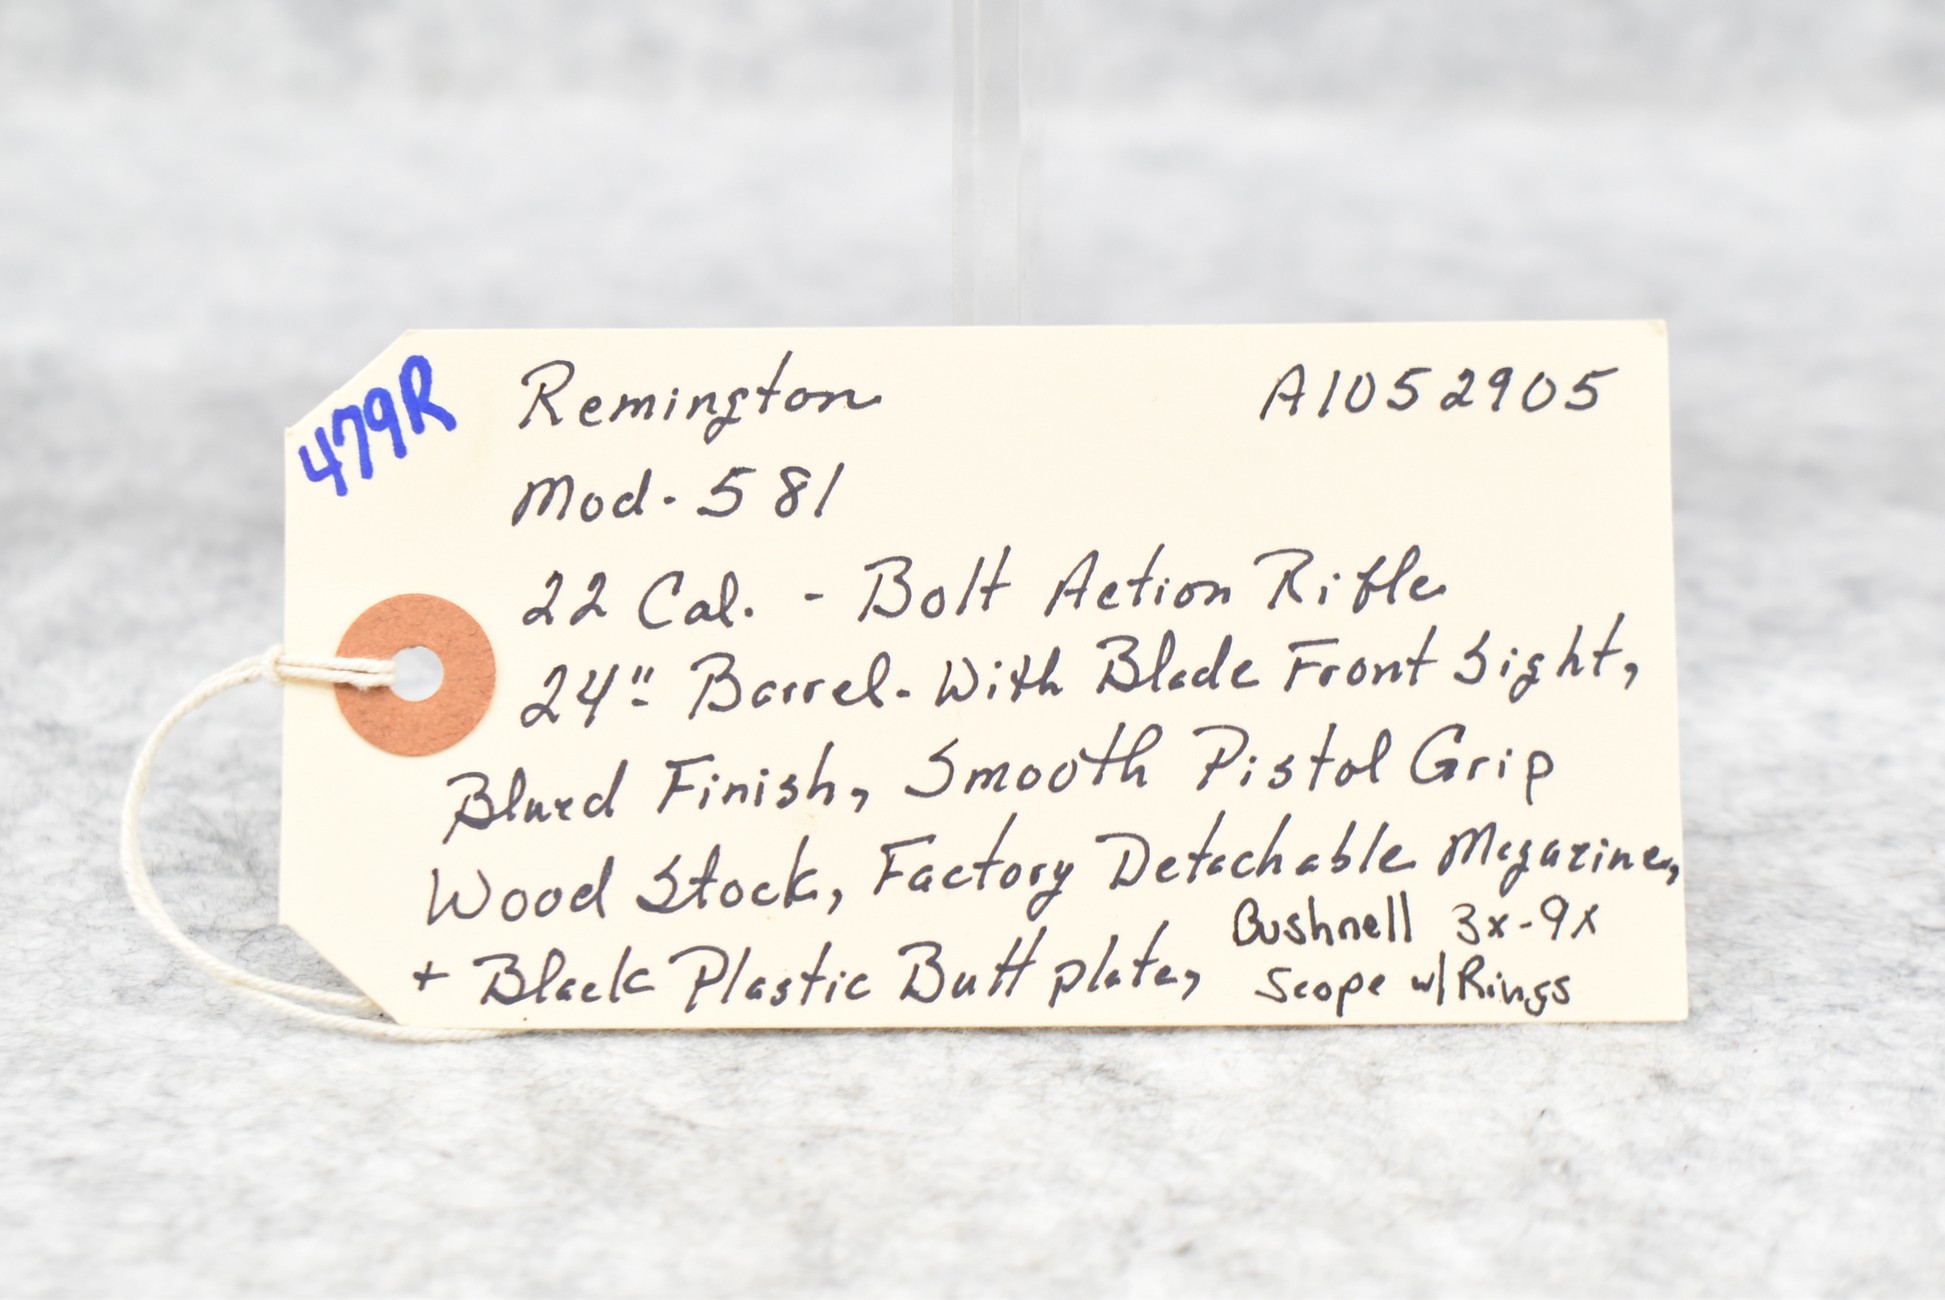 479R
Remington A1052905
Mod. 581
22 Cal. - Bolt Action Rifle
24" Barrel - With Blade Front Sight,
Blued Finish, Smooth Pistol Grip
Wood Stock, Factory Detachable Magazine,
+ Black Plastic Butt plate, Bushnell 3x-9x
Scope w/ Rings